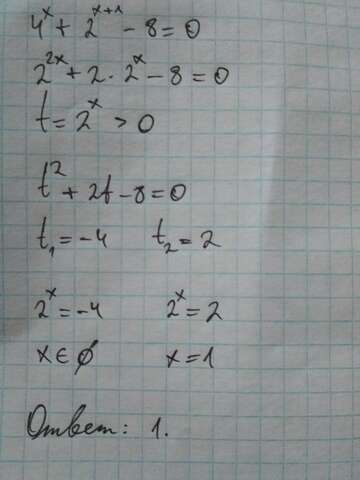 4ˣ + 2ˣ⁺¹ - 8 = 0
2²ˣ + 2 · 2ˣ - 8 = 0
t = 2ˣ > 0
t² + 2t - 8 = 0
t₁ = -4 t₂ = 2
2ˣ = -4 2ˣ = 2
x ∈ ∅ x = 1
Ответ: 1.